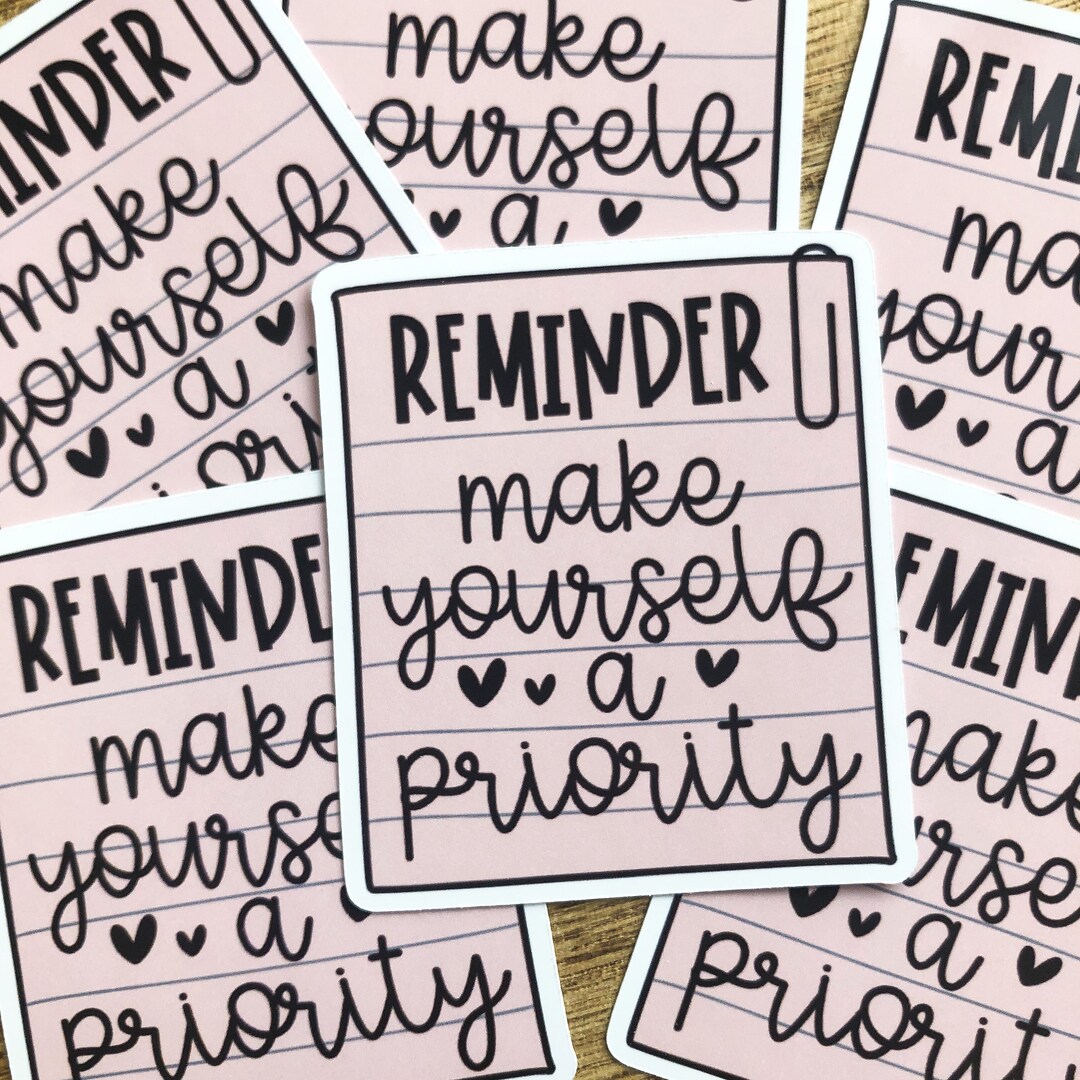 INDER
make
yourself
a
iori
make
ourself
a
REMI
ma
your
a
REMINDER
make
yourself
a
priority
REMINDE
make
yourse
a
priority
EMIN
make
urse
a
priorit